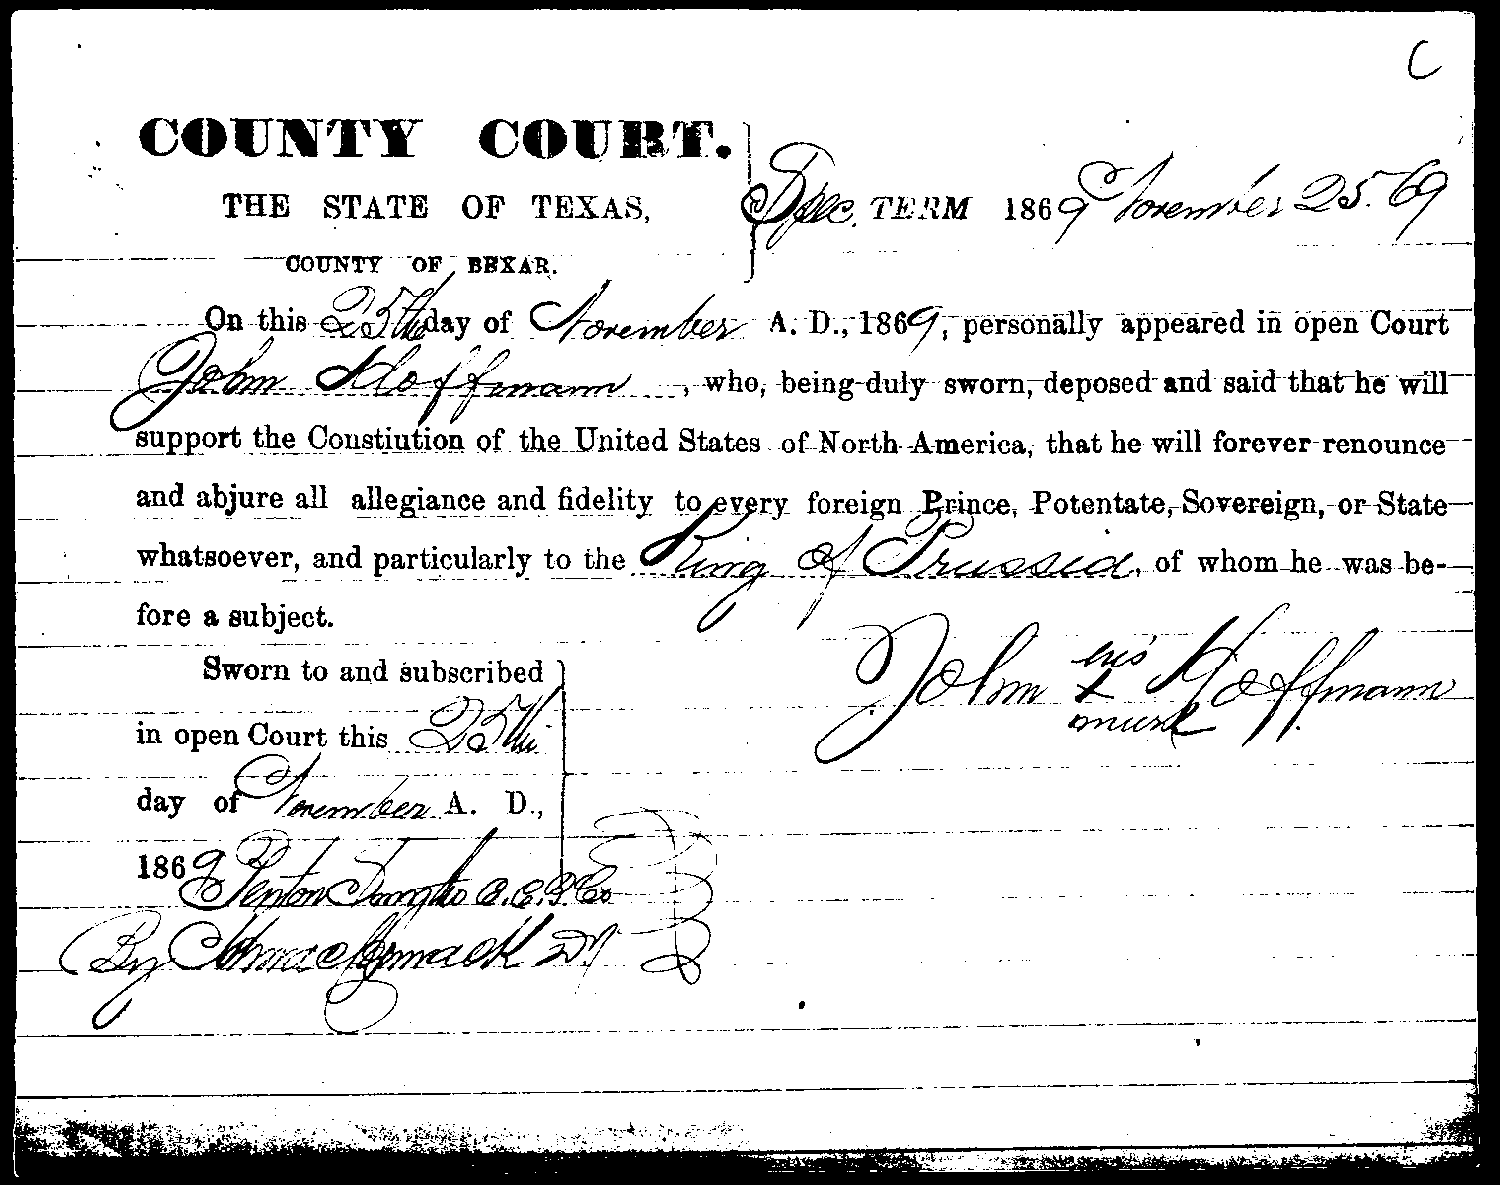 C
COUNTY COURT.
THE STATE OF TEXAS,
Spec. TERM 1869 November 25. 69
COUNTY OF BEXAR.
On this 25th day of November A. D., 1869, personally appeared in open Court
John Hoffmann, who, being duly sworn, deposed and said that he will
support the Constiution of the United States of North America, that he will forever renounce
and abjure all allegiance and fidelity to every foreign Prince, Potentate, Sovereign, or State
whatsoever, and particularly to the King of Prussia, of whom he was be-
fore a subject.
John his X mark Hoffmann
Sworn to and subscribed
in open Court this 25th
day of November A. D.,
1869
By